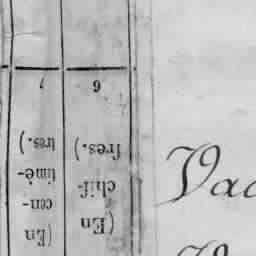 (En
chif-
fres.)
6
(En
cen-
timè-
tres.)
7
Vac